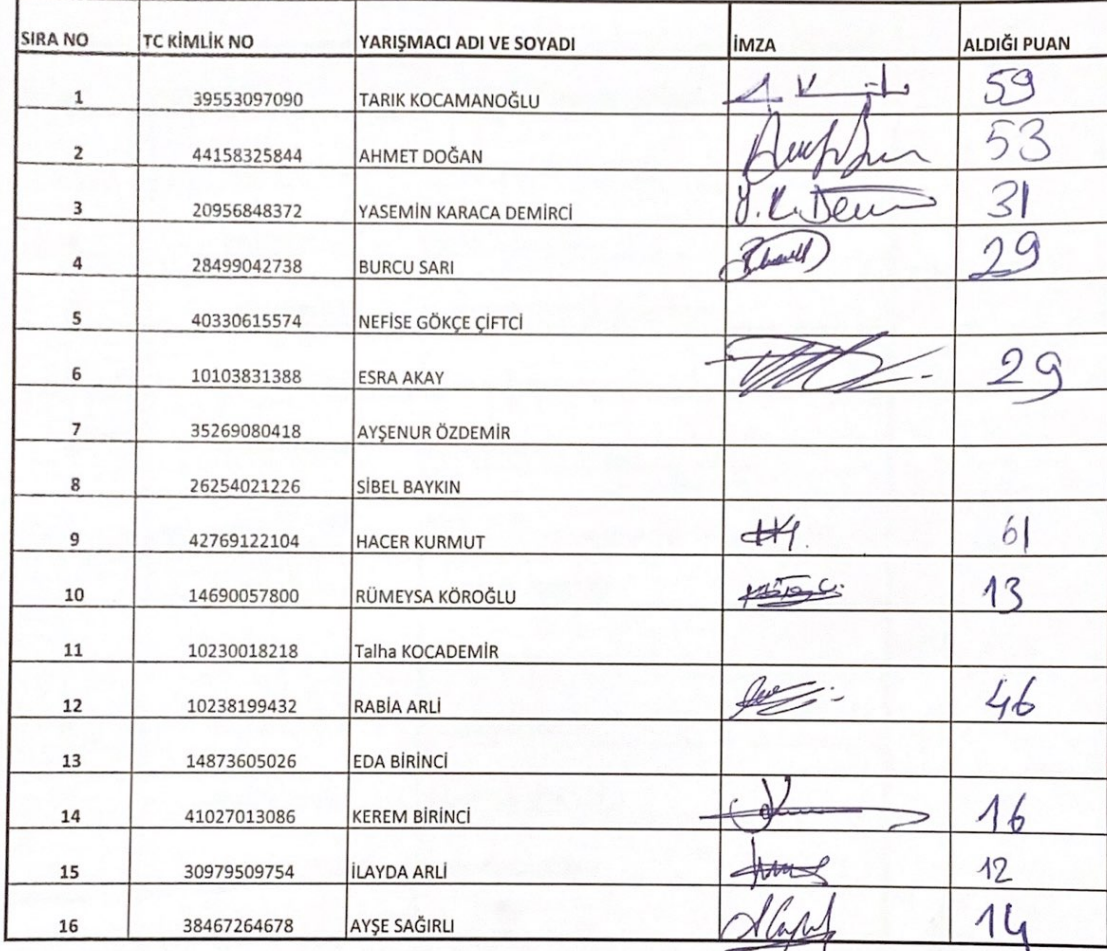 SIRA NO TC KİMLİK NO YARIŞMACI ADI VE SOYADI İMZA ALDIĞI PUAN
1 39553097090 TARIK KOCAMANOĞLU 59
2 44158325844 AHMET DOĞAN 53
3 20956848372 YASEMİN KARACA DEMİRCİ 31
4 28499042738 BURCU SARI 29
5 40330615574 NEFİSE GÖKÇE ÇİFTCİ
6 10103831388 ESRA AKAY 29
7 35269080418 AYŞENUR ÖZDEMİR
8 26254021226 SİBEL BAYKIN
9 42769122104 HACER KURMUT 61
10 14690057800 RÜMEYSA KÖROĞLU 13
11 10230018218 Talha KOCADEMİR
12 10238199432 RABİA ARLİ 46
13 14873605026 EDA BİRİNCİ
14 41027013086 KEREM BİRİNCİ 16
15 30979509754 İLAYDA ARLİ 12
16 38467264678 AYŞE SAĞIRLI 14